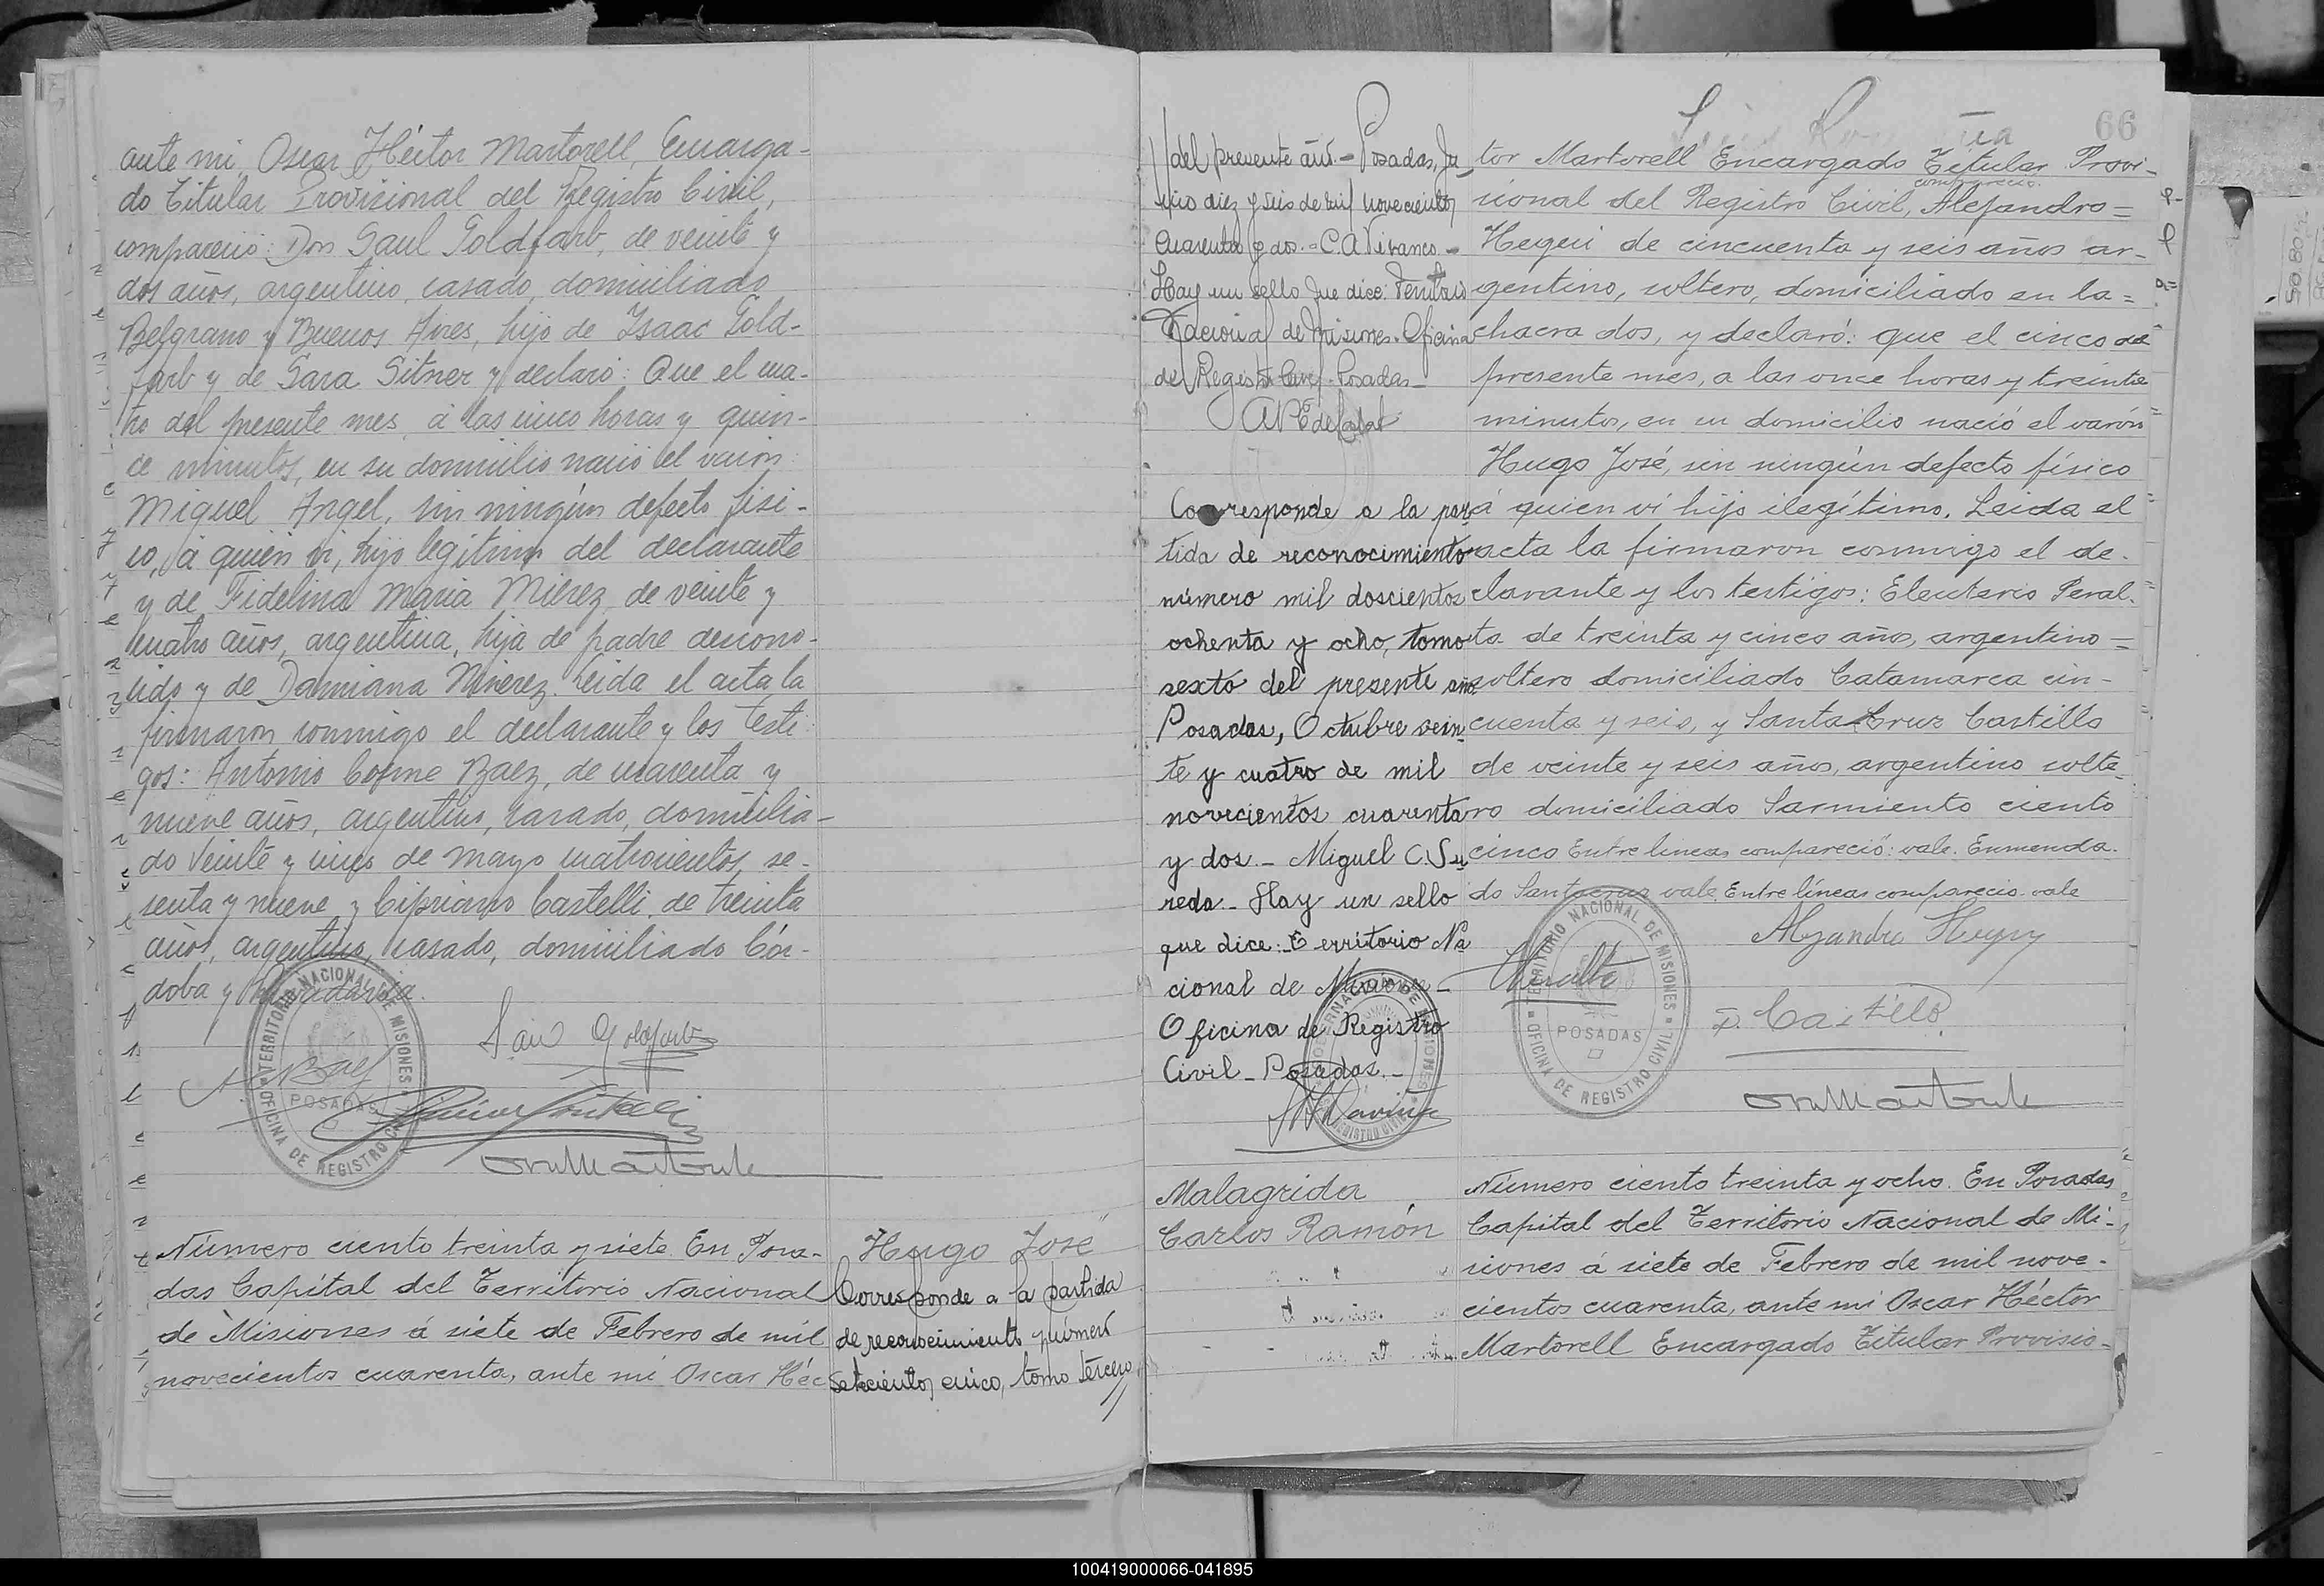 ante mi, Oscar Héctor Martorell, Encarga-
do Titular Provisional del Registro Civil,
compareció: Don Saul Goldfarb, de veinte y
dos años, argentino, casado, domiciliado
Belgrano y Buenos Aires, hijo de Isaac Gold-
farb y de Sara Sitner y declaró: Que el cua-
tro del presente mes, á las cinco horas y quin-
ce minutos, en su domicilio nació el varon
Miguel Angel, sin ningún defecto físi-
co, á quien vi, hijo legítimo del declarante
y de Fidelina Maria Mierez, de veinte y
cuatro años, argentina, hija de padre descono-
cido y de Damiana Mierez. Leida el acta la
firmaron conmigo el declarante y los testi-
gos: Antonio Cosme Baez, de cuarenta y
nueve años, argentino, casado, domicilia-
do veinte y cinco de mayo cuatrocientos se-
senta y nueve y Cipriano Castelli, de treinta
años, argentino, casado, domiciliado Cór-
doba y Rivadavia.
TERRITORIO NACIONAL DE MISIONES
POSADAS
OFICINA DE REGISTRO CIVIL
Número ciento treinta y siete. En Posa-
das Capital del Territorio Nacional
de Misiones á siete de Febrero de mil
novecientos cuarenta, ante mi Oscar Héc
Hugo José
Corresponde a la partida
de reconocimiento número
setecientos cinco, tomo tercero
66
//del presente año.- Posadas, Ju
nio diez y seis de mil novecientos
cuarenta y dos.- C.A. Vivanco.-
Hay un sello que dice: Territorio
Nacional de Misiones. Oficina
de Registro Civil. Posadas-
Corresponde a la par
tida de reconocimiento
número mil doscientos
ochenta y ocho, tomo
sexto del presente año
Posadas, Octubre vein
te y cuatro de mil
novecientos cuarenta
y dos.- Miguel C. Su
reda.- Hay un sello
que dice: Territorio Na
cional de Misiones-
Oficina de Registro
Civil- Posadas.-
tor Martorell Encargado Titular Provi-
compareció.
sional del Registro Civil, Alejandro=
Hegui de cincuenta y seis años ar-
gentino, soltero, domiciliado en la=
chacra dos, y declaró: que el cinco del
presente mes, a las once horas y treinta
minutos, en su domicilio nació el varón
Hugo José, sin ningún defecto físico
á quien ví hijo ilegítimo. Leida el
acta la firmaron conmigo el de-
clarante y los testigos: Eleuterio Peral-
ta de treinta y cinco años, argentino=
soltero domiciliado Catamarca cin-
cuenta y seis, y Santa Cruz Castillo
de veinte y seis años, argentino solte-
ro domiciliado Sarmiento ciento
cinco Entre lineas compareció: vale. Enmenda-
do Santacruz vale. Entre líneas compareció vale
TERRITORIO NACIONAL DE MISIONES
POSADAS
OFICINA DE REGISTRO CIVIL
Malagrida
Carlos Ramón
Número ciento treinta y ocho. En Posadas
Capital del Territorio Nacional de Mi-
siones á siete de Febrero de mil nove-
cientos cuarenta, ante mi Oscar Héctor
Martorell Encargado Titular Provisio-
100419000066-041895